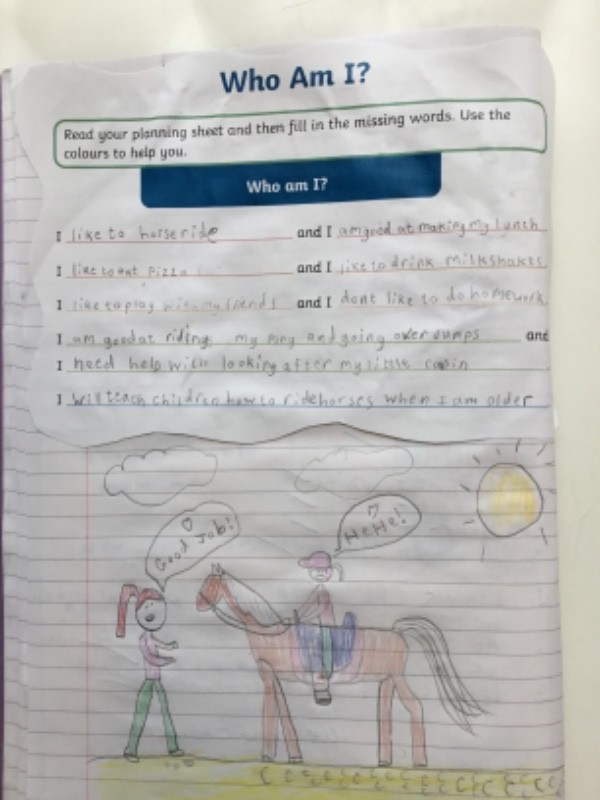 Who Am I?
Read your planning sheet and then fill in the missing words. Use the
colours to help you.
Who am I?
I like to horse ride and I am good at making my lunch
I like to eat pizza and I like to drink milkshakes
I like to play with my friends and I dont like to do homework
I am good at riding my pony and going over jumps and
I need help with looking after my little
I will teach children how to ride horses when I am older
Good Job!
HeHe!